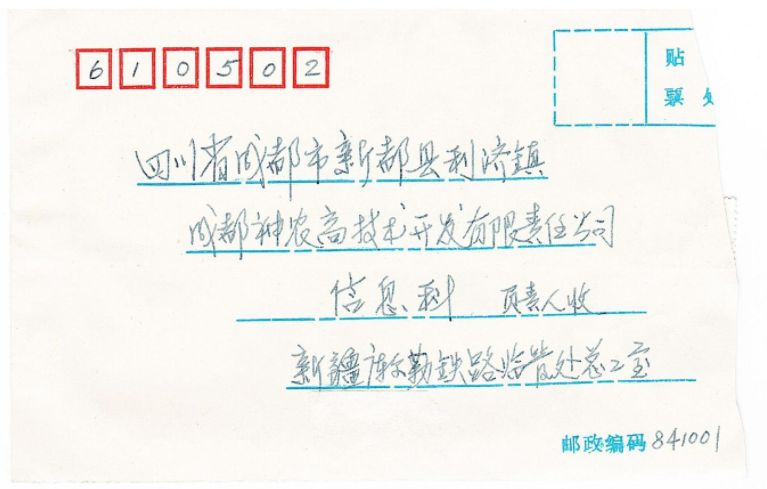 610502
贴
票处
四川省成都市新都县利济镇
成都神农高技术开发有限责任公司
信息科 负责人收
新疆库尔勒铁路临管处总工室
邮政编码841001